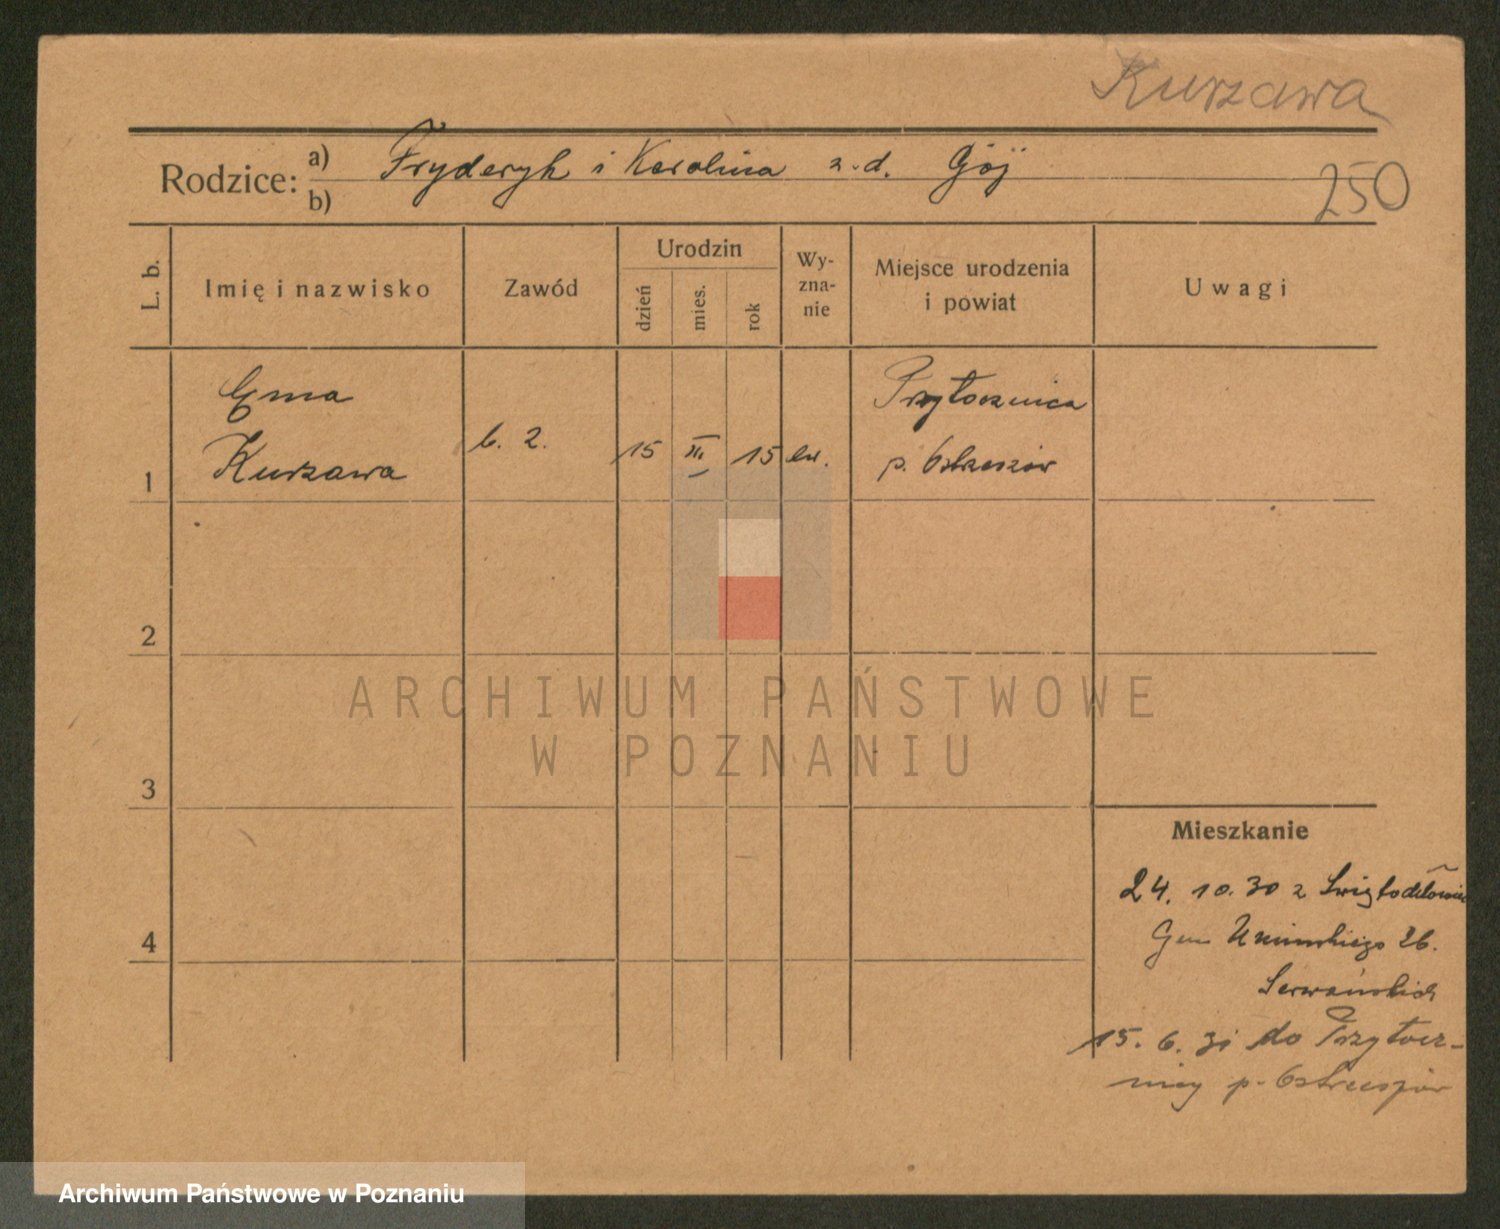 Kurzawa
Rodzice: a) Fryderyk i Karolina z.d. Gój
b)
250
L. b.
Imię i nazwisko
Zawód
Urodzin
dzień
mies.
rok
Wy-
zna-
nie
Miejsce urodzenia
i powiat
Uwagi
Ema
Kurzawa
b. z.
15
15
ew.
Przytocznica
p. Ostrzeszów
1
2
3
4
ARCHIWUM PAŃSTWOWE
W POZNANIU
Mieszkanie
24. 10. 30 z
Gen Umińskiego 26.
15. 6. 31 do Przytocz-
nicy p. Ostrzeszów
Archiwum Państwowe w Poznaniu